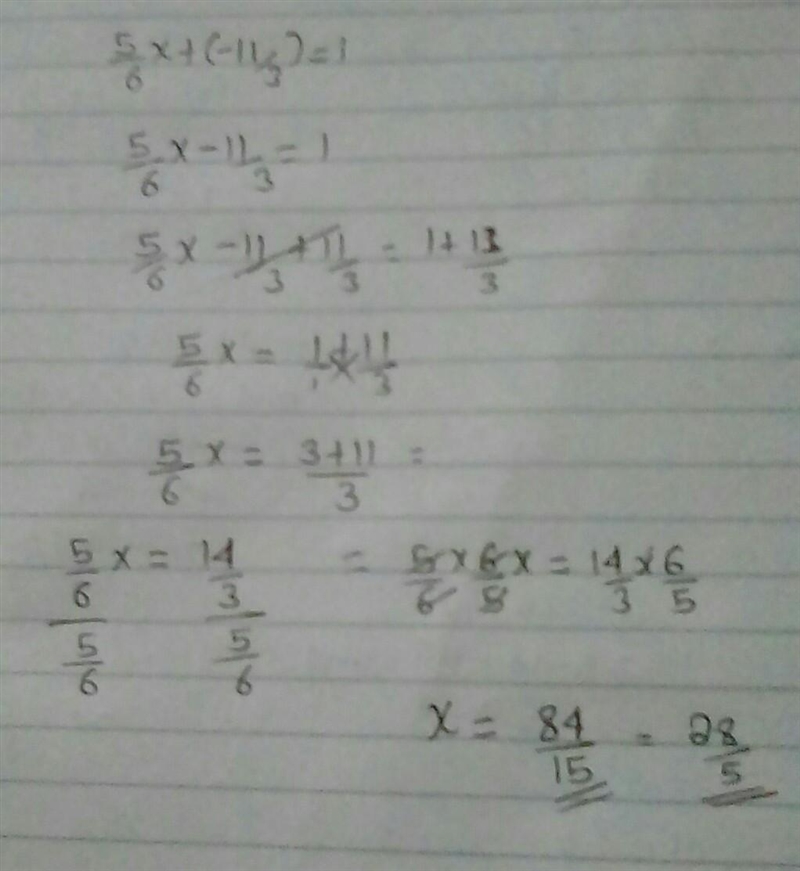 5/6 x + (-11/3) = 1
5/6 x - 11/3 = 1
5/6 x - 11/3 + 11/3 = 1 + 11/3
5/6 x = 1/1 + 11/3
5/6 x = 3+11/3 =
5/6 x / 5/6 = 14/3 / 5/6 = 5/6 x 6/5 x = 14/3 x 6/5
x = 84/15 = 28/5